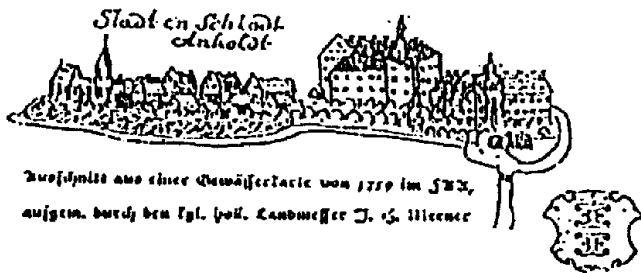 Stadt en Schlodt
Anholdt
Ausschnitt aus einer Gewässerkarte von 1759 im FSA,
aufgem. durch den kgl. holl. Landmesser J. H. Merner